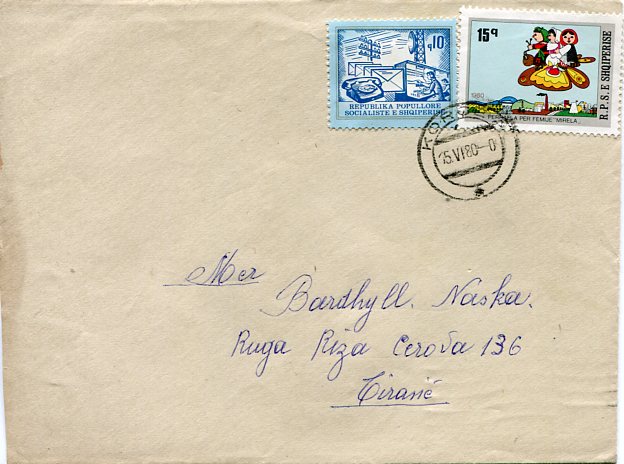 q10
REPUBLIKA POPULLORE
SOCIALISTE E SHQIPERISE
15q
R.P.S. E SHQIPERISE
1980
PER FEMIJE "MIRELA"
15.VI80-0
Mer
Bardhyll. Naska.
Ruga Riza Cerova 136
Tiranë